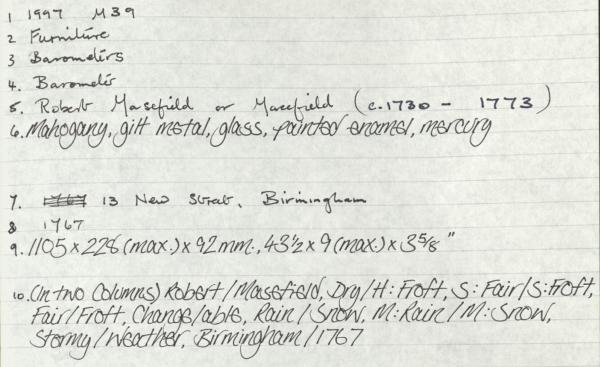 1 1997 M39
2 Furniture
3 Barometers
4. Barometer
5. Robert Masefield or Macefield (c.1730 - 1773)
6. Mahogany, gilt metal, glass, painted enamel, mercury
7. 13 New Street, Birmingham
8 1767
9. 1105 x 228 (max.) x 92 mm., 43½ x 9 (max.) x 3 5/8 "
10. (In two Columns) Robert/Masefield, Dry/H:Froft, S:Fair/S:Froft,
Fair/Froft, Change/able, Rain/Snow, M:Rain/M:Snow,
Stormy/Weather, Birmingham/1767